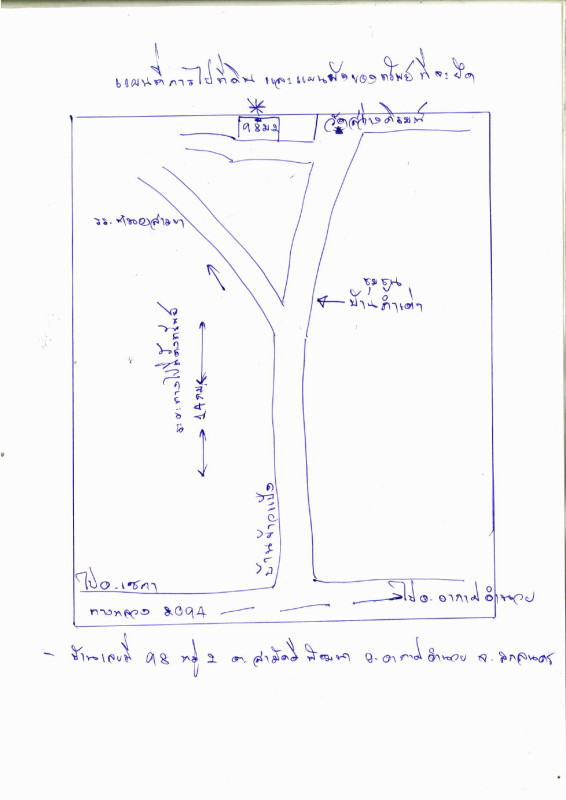 แผนที่การไปที่ดิน และแผนผังของทรัพย์ที่จะยึด
98 ม.2
วัดสว่างภิรมย์
รร.
ชุมชน
บ้านถ้ำเต่า
ระยะทางไปที่ตั้งทรัพย์
14 กม.
ไป อ.เซกา
ทางหลวง
ไป อ. อากาศอำนวย
- บ้านเลขที่ 98 หมู่ 2 ต. สามัคคีพัฒนา อ. อากาศอำนวย จ. สกลนคร